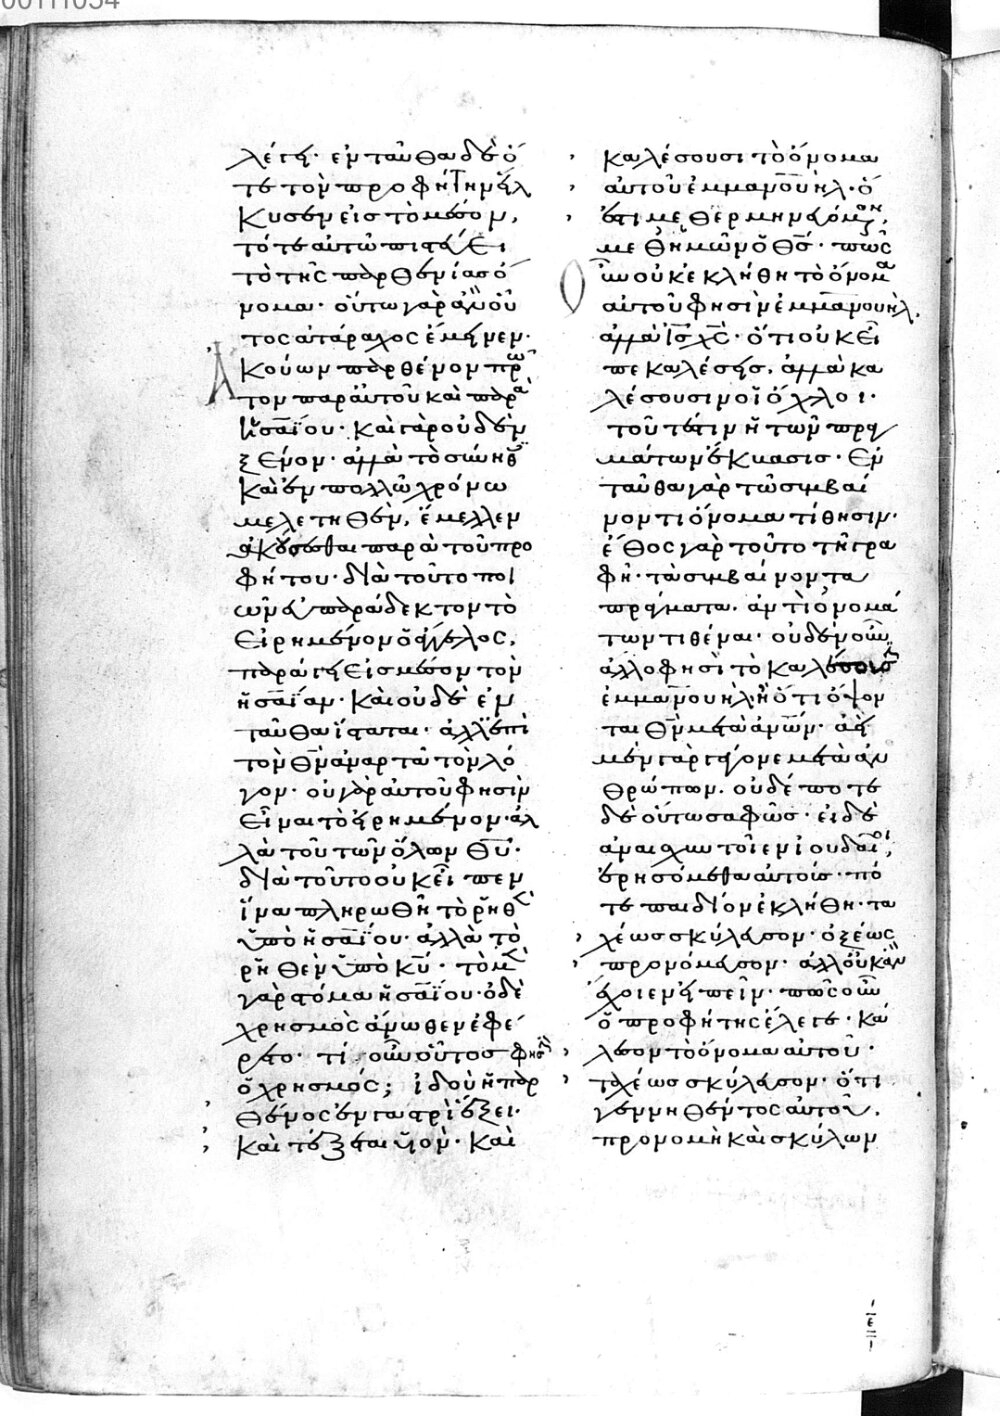 00111054
λέγει· ἐνταῦθα δὲ ὅ
τε τὸν προφήτην εἷλ
κυσεν εἰς τὸ μέσον,
τότε αὐτῷ πιστεύει
τὸ τῆς παρθενίας ὄ
νομα· οὕτω γὰρ ἂν οὐ
τος ἀτάραχος ἔμεινεν·
Ἀκούων παρθένον πρῶ
τον παρ' αὐτοῦ καὶ παρὰ
ἡσαΐου· καὶ γὰρ οὐδὲν
ξένον· ἀλλὰ τὸ σύνηθ
καὶ ἐν πολλῶ χρόνω
μελετηθὲν, ἔμελλεν
ἀκούσεσθαι παρὰ τοῦ προ
φήτου· διὰ τοῦτο ποι
ῶν εὐπαράδεκτον τὸ
εἰρημένον ὁ ἄγγελος,
παράγει εἰς μέσον τὸν
ἡσαΐαν· καὶ οὐδὲ ἐν
ταῦθα ἵσταται· ἀλλ' ἐπὶ
τὸν θν ἀναρτᾶ τὸν λό
γον· οὐ γὰρ αὐτοῦ φησὶν
εἶναι τὸ εἰρημένον· ἀλ
λὰ τοῦ τῶν ὅλων θυ·
διὰ τοῦτο οὐκ εἶπεν
ἵνα πληρωθῆ τὸ ῥηθὲ
ὑπὸ ἡσαΐου· ἀλλὰ τὸ
ῥηθὲν ὑπὸ κυ· τὸ μὲ
γὰρ στόμα ἡσαΐου· ὁ δὲ
χρησμὸς ἄνωθεν ἐφέ
ρετο· τί οὖν οὗτος φησὶν
ὁ χρησμός; ἰδοὺ ἡ παρ
θένος ἐν γαστρὶ ἕξει·
καὶ τέξεται υἱόν· καὶ
καλέσουσι τὸ ὄνομα
αὐτοῦ ἐμμανουὴλ· ὅ
ἐστι μεθερμηνευόμενον
μεθ' ἡμῶν ὁ θς· πῶς
οὖν οὐκ ἐκλήθη τὸ ὄνομα
αὐτοῦ φησὶν ἐμμανουὴλ,
ἀλλὰ ις χς· ὅτι οὐκ εἶ
πε καλέσεις, ἀλλὰ κα
λέσουσιν οἱ ὄχλοι·
τουτέστιν ἡ τῶν πραγ
μάτων ἔκβασις· ἐν
ταῦθα γὰρ τὸ συμβαῖ
νόν τι ὄνομα τίθησιν·
ἔθος γὰρ τοῦτο τῆ γρα
φῆ· τὰ συμβαίνοντα
πράγματα, ἀντὶ ὀνομά
των τιθέναι· οὐδὲν οὖν
ἄλλο φησὶ τὸ καλέσουσιν
ἐμμανουὴλ, ἢ ὅτι ὄψον
ται θν μετὰ ἀνων· ἀεὶ
μὲν γὰρ γέγονε μετὰ ἀν
θρώπων. οὐδέποτε
δὲ οὕτω σαφῶς· εἰ δὲ
ἀναισχυντοῖεν ἰουδαῖοι,
ἐρησόμεθα αὐτούς· πό
τε παιδίον ἐκλήθη· τα
χέως σκύλευσον· ὀξέως
προνόμευσον· ἀλλ' οὐκ ἂν
ἔχοιεν εἰπεῖν· πῶς οὖν
ὁ προφήτης ἔλεγε· κά
λεσον τὸ ὄνομα αὐτοῦ·
ταχέως σκύλευσον· ὅτι
γεννηθέντος αὐτοῦ,
προνομὴ καὶ σκύλων